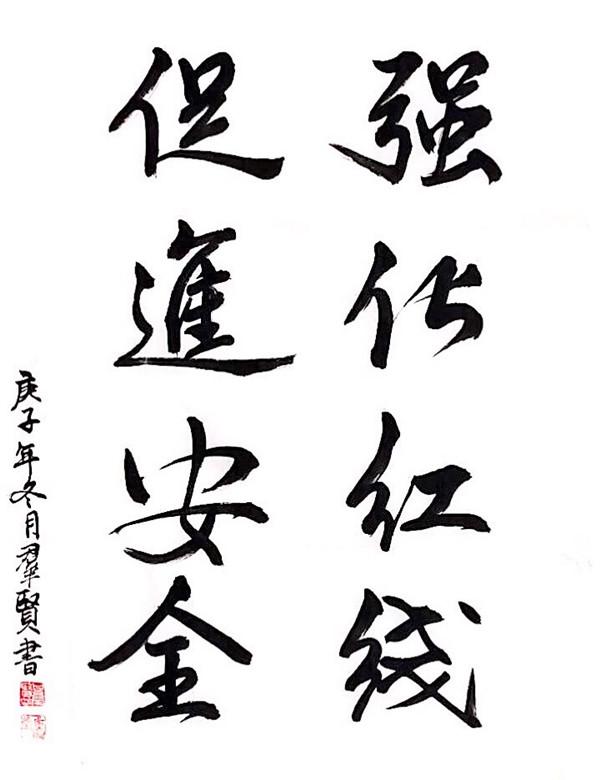 强化红线
促進安全
庚子年冬月羣賢書